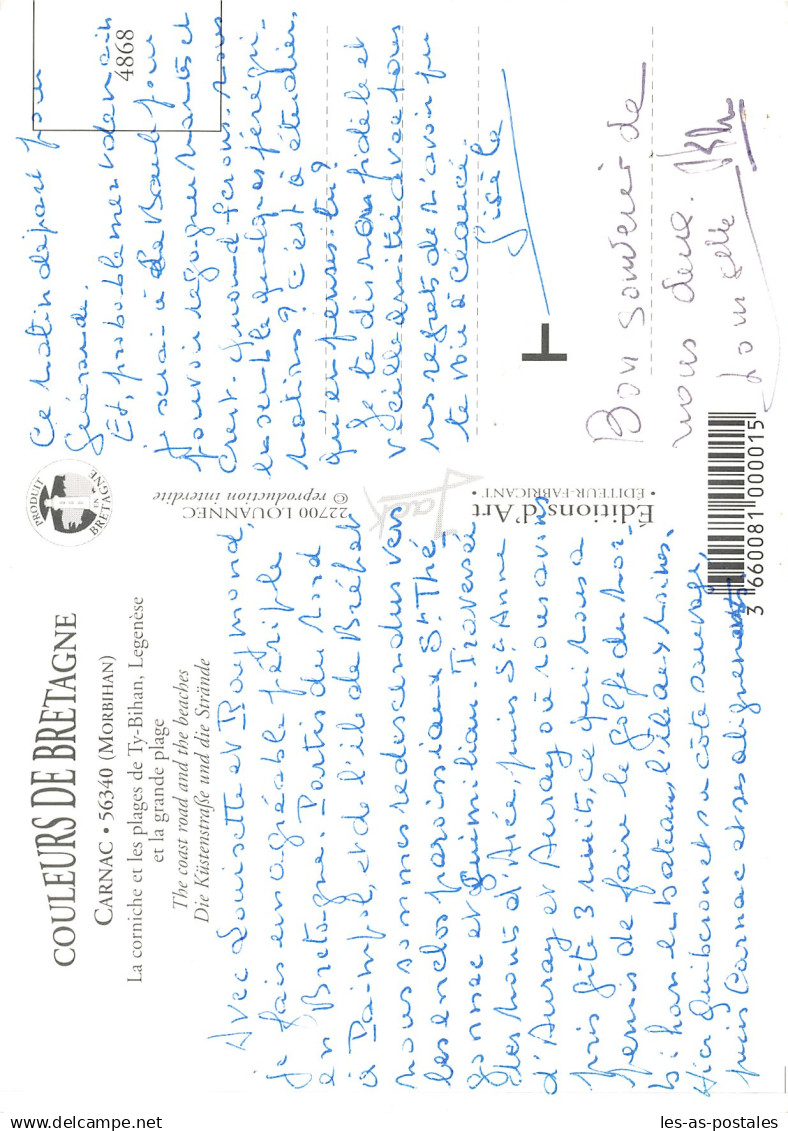 COULEURS DE BRETAGNE
CARNAC • 56340 (MORBIHAN)
La corniche et les plages de Ty-Bihan, Legenèse
et la grande plage
The coast road and the beaches
Die Küstenstraße und die Strände
PRODUIT EN BRETAGNE
4868
Avec Louisette et Raymond,
je fais un agréable périple
en Bretagne. Partis du Nord
à Paimpol, et de l'île de Bréhat
nous sommes redescendus vers
les enclos paroissiaux St Thé
gonnec et Guimiliau. Traversée
des Monts d'Arée, puis St Anne
d'Auray et Auray où nous avons
pris gîte 3 nuits, ce qui nous a
permis de faire le golfe du Mor-
bihan en bateau, l'île aux Moines.
Hier Quiberon et sa côte sauvage,
puis Carnac et ses alignements
Ce matin départ pour
Guérande.
Et, probablement demain
je serai à La Baule pour
pouvoir regagner Nantes et
Crest. Quand ferons-nous
ensemble quelques pérégri-
nations? C'est à étudier,
qu'en penses-tu?
Je te dis mon fidèle et
vieille amitié avec tous
nos regrets de n'avoir pu
te voir à
Gisèle
Bon souvenir de
nous deux.
22700 LOUANNEC
© reproduction interdite
Jack
Éditions d'Art
• ÉDITEUR-FABRICANT •
3 660081 000015
les-as-postales